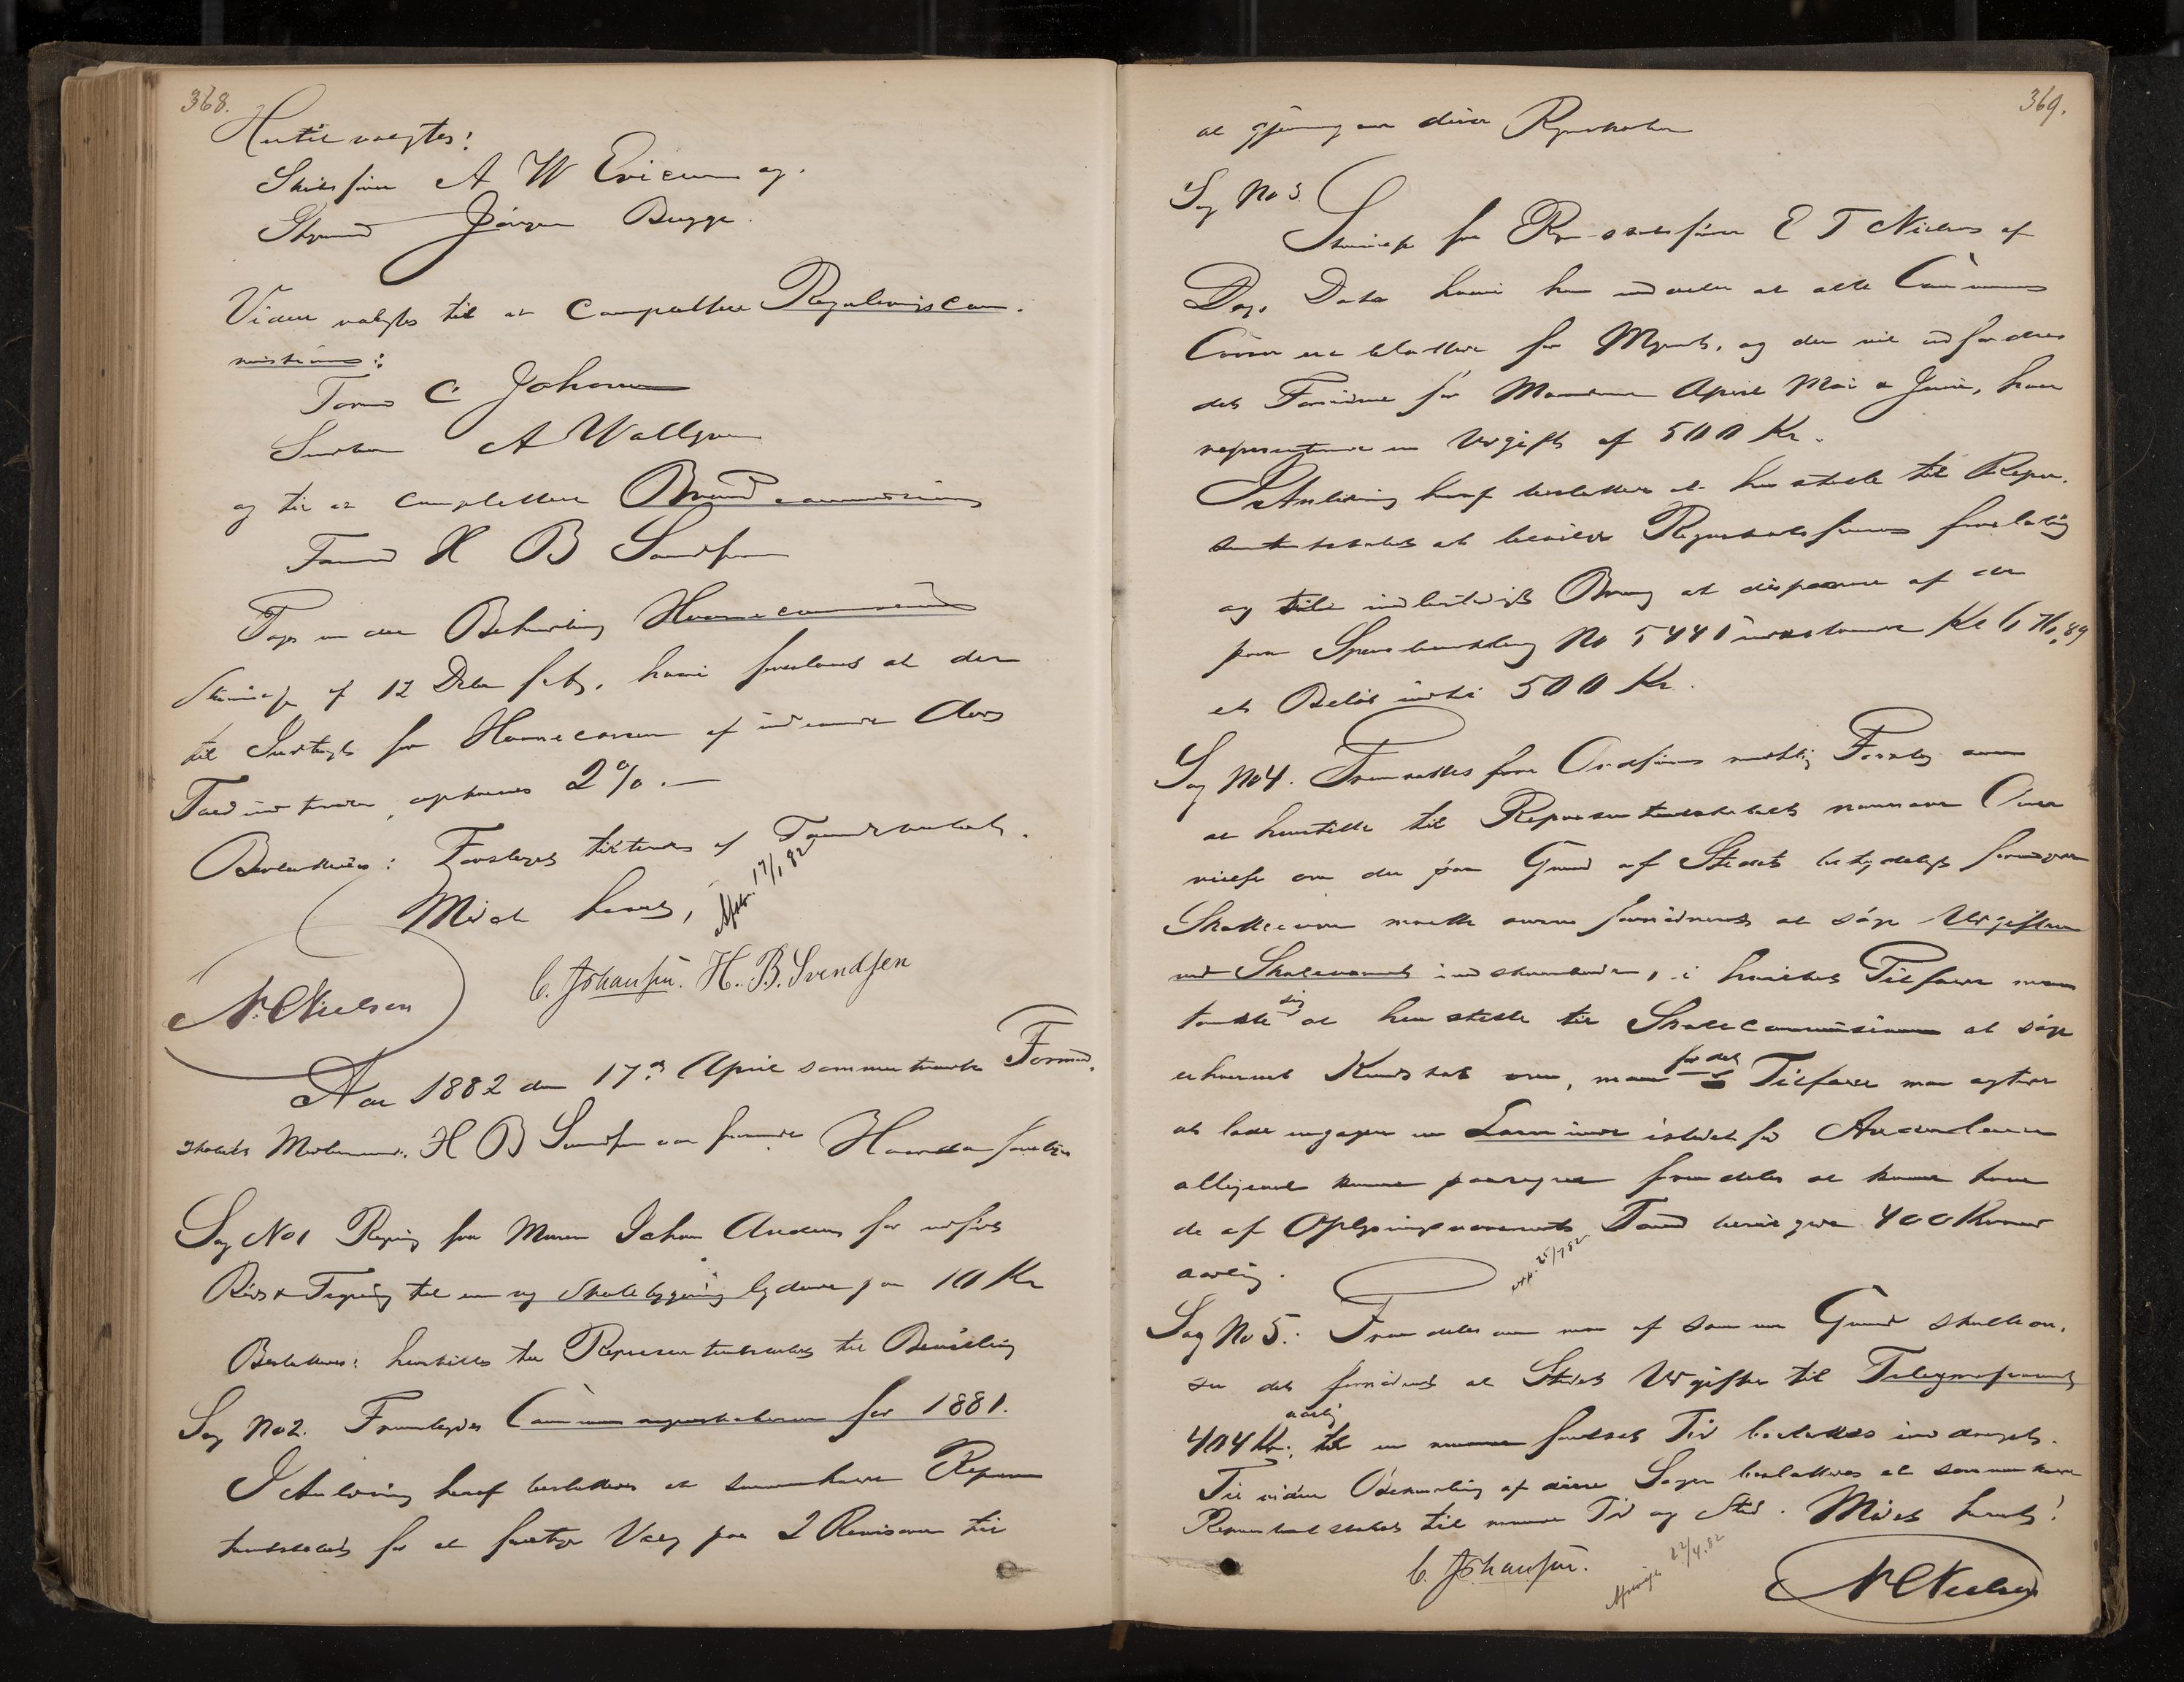 368.
Hertil valgtes:
Skibsfører A W Ericsen og
Styrmand Jörgen Bugge.
Videre valgtes til at complettere Regulerings com-
missionen:
Formd C Johansen
Snedker A Wallgren
og til at complettere Brandcommissionen
Formd H B Svendsen
Toges under Behandling Havnecommissionens
Skrivelse af 12 Debr f. A., hvori foreslaaes at den
til Indtægt for Havnecassen af indkomne
Told opkræves 2%.—
Besluttedes: Forslaget tiltrædes af Formandskabet.
Mødet hævet,
Afskr. 17/1 82
N. C. Nielsen C. Johansen. H. B. Svendsen
Aar 1882 den 17d April sammentraadte Formand-
skabets Medlemmer. H B Svendsen var fraværende
Sag No 1 Regning fra Murer Johan Andersen for udført
Rids & Tegning til en ny Skolebygning lydende paa 10 Kr
Besluttedes: henstilles til Repræsentantskabet til Bevilling
Sag No 2. Fremlagdes Communeregnskaberne for 1881.
I Anledning heraf besluttedes at sammenkalde Repræsen-
tantskabet for at foretage Valg paa 2 Revisorer til
369.
at gjennemgaa disse Regnskaber
Sag No 3.
Skrivelse fra Regnskabsfører E T Nielsen af
Dags Dato hvori han at alle Communens
Casser ere blottede for Mynt, og der vil udfordres
det Fornødne for Maanederne April Mai & Juni, hvor
repræsenterende en Udgift af 500 Kr.
I Anledning heraf besluttedes at henstille til Repræ-
sentantskabet at bevilge Regnskabsføreren foreløbig
og til midlertidigt Brug at disponere af den
paa Sparebankbog No 5440 indestaaende Kr
et Beløb indtil 500 Kr.
Sag No 4. Fremsattes fra Ordføreren mundtlig Forslag om
at henstille til Repræsentantskabet nærmere Over-
veielse om der paa Grund af Stedets betydeligt formindskede
Skatteevne maatte ansees fornødent at søge Udgifterne
ved Skolevæsenet indskrænkede, i hvilket Tilfælde man
tænkte sig at henstille til Skolecommissionen at søge
erhvervet Kundskab om, man for det Tilfælde man agter
at lade engagere en Lærerinde istedet for Anden lærer
alligevel kunne paaregne fremdeles at kunne have
de af Oplysningsvæsenets Fond bevilgede 400 Kroner
aarlig.
exp. 25/4 82
Sag No 5. Fremdeles om man af samme Grund skulde an-
see det fornødent at Stedets Udgifter til Telegrafvæsenet
404 Kr. aarlig til en fastsat Tid besluttedes inddraget.
Til videre Behandling af disse Sager besluttedes at sammenkalde
Repræsentantskabet til nærmere Tid og Sted. Mødet hævet!
C. Johansen. 22/4.82
N C Nielsen